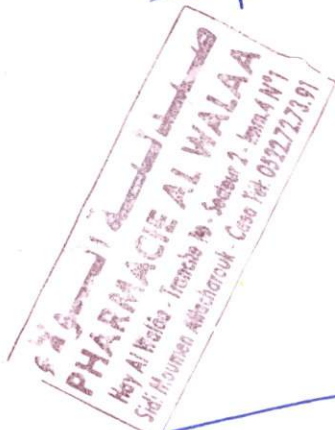 صيدلية الولاء
PHARMACIE AL WALAA
Hay Al Walaa - Tranche - Secteur 2 - Imm.4 N°1
Sidi Moumen Attacharouk - Casa Tél: 0522.72.73.91